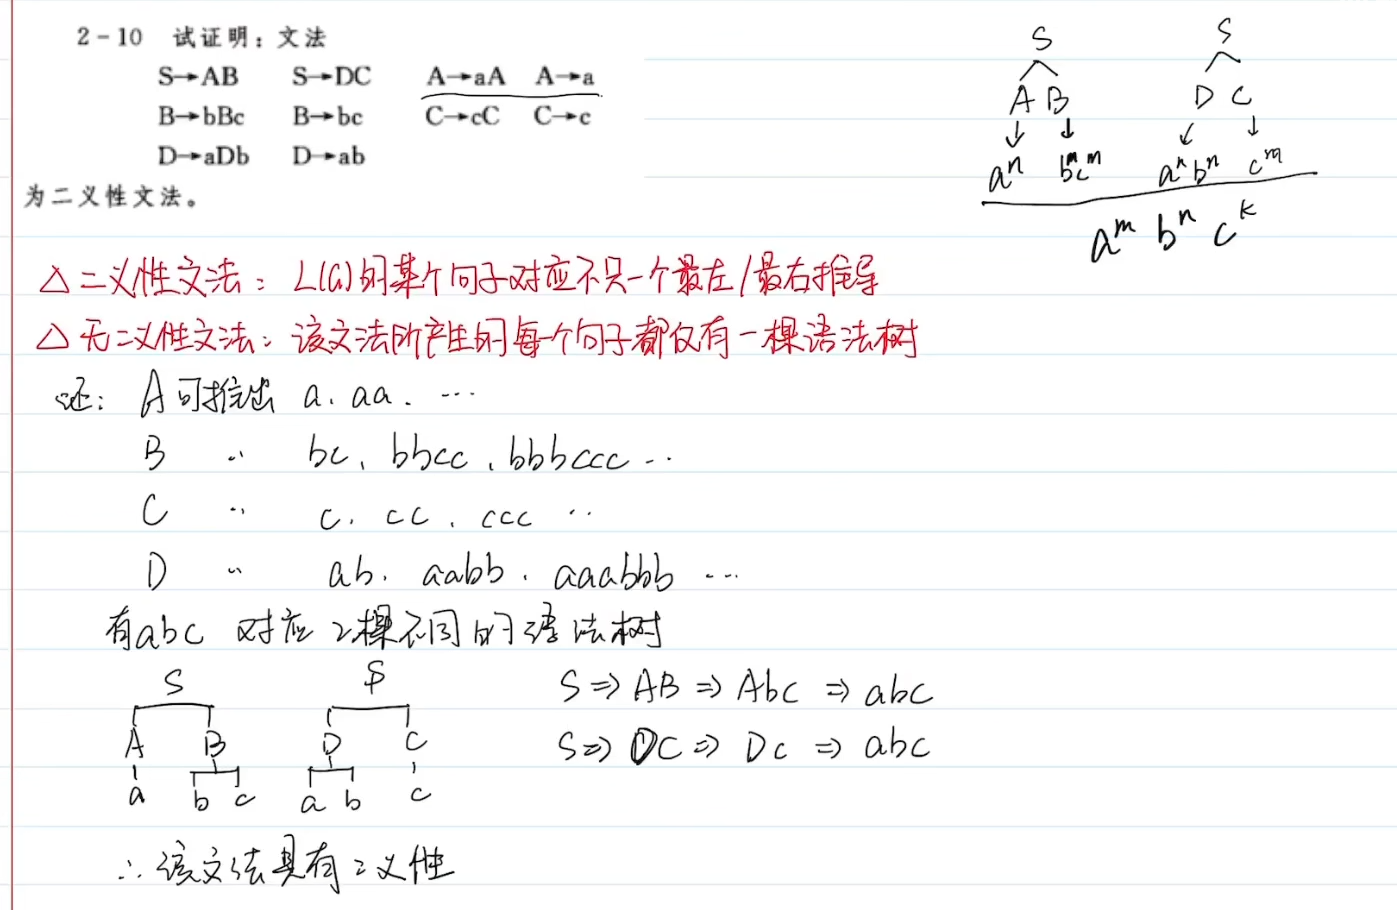 2-10 试证明：文法
S→AB S→DC A→aA A→a
B→bBc B→bc C→cC C→c
D→aDb D→ab
为二义性文法。
S S
A B D C
aⁿ bᵐcᵐ aⁿbⁿ cᵐ
aᵐ bⁿ cᵏ
△ 二义性文法：L(G)的某个句子对应不只一个最左/最右推导
△ 无二义性文法：该文法所产生的每个句子都仅有一棵语法树
证：A可推出 a、aa、…
B 〃 bc、bbcc、bbbccc …
C 〃 c、cc、ccc …
D 〃 ab、aabb、aaabbb …
有abc 对应2棵不同的语法树
S S
A B D C
a b c a b c
S⇒AB⇒Abc⇒abc
S⇒DC⇒Dc⇒abc
∴该文法具有二义性